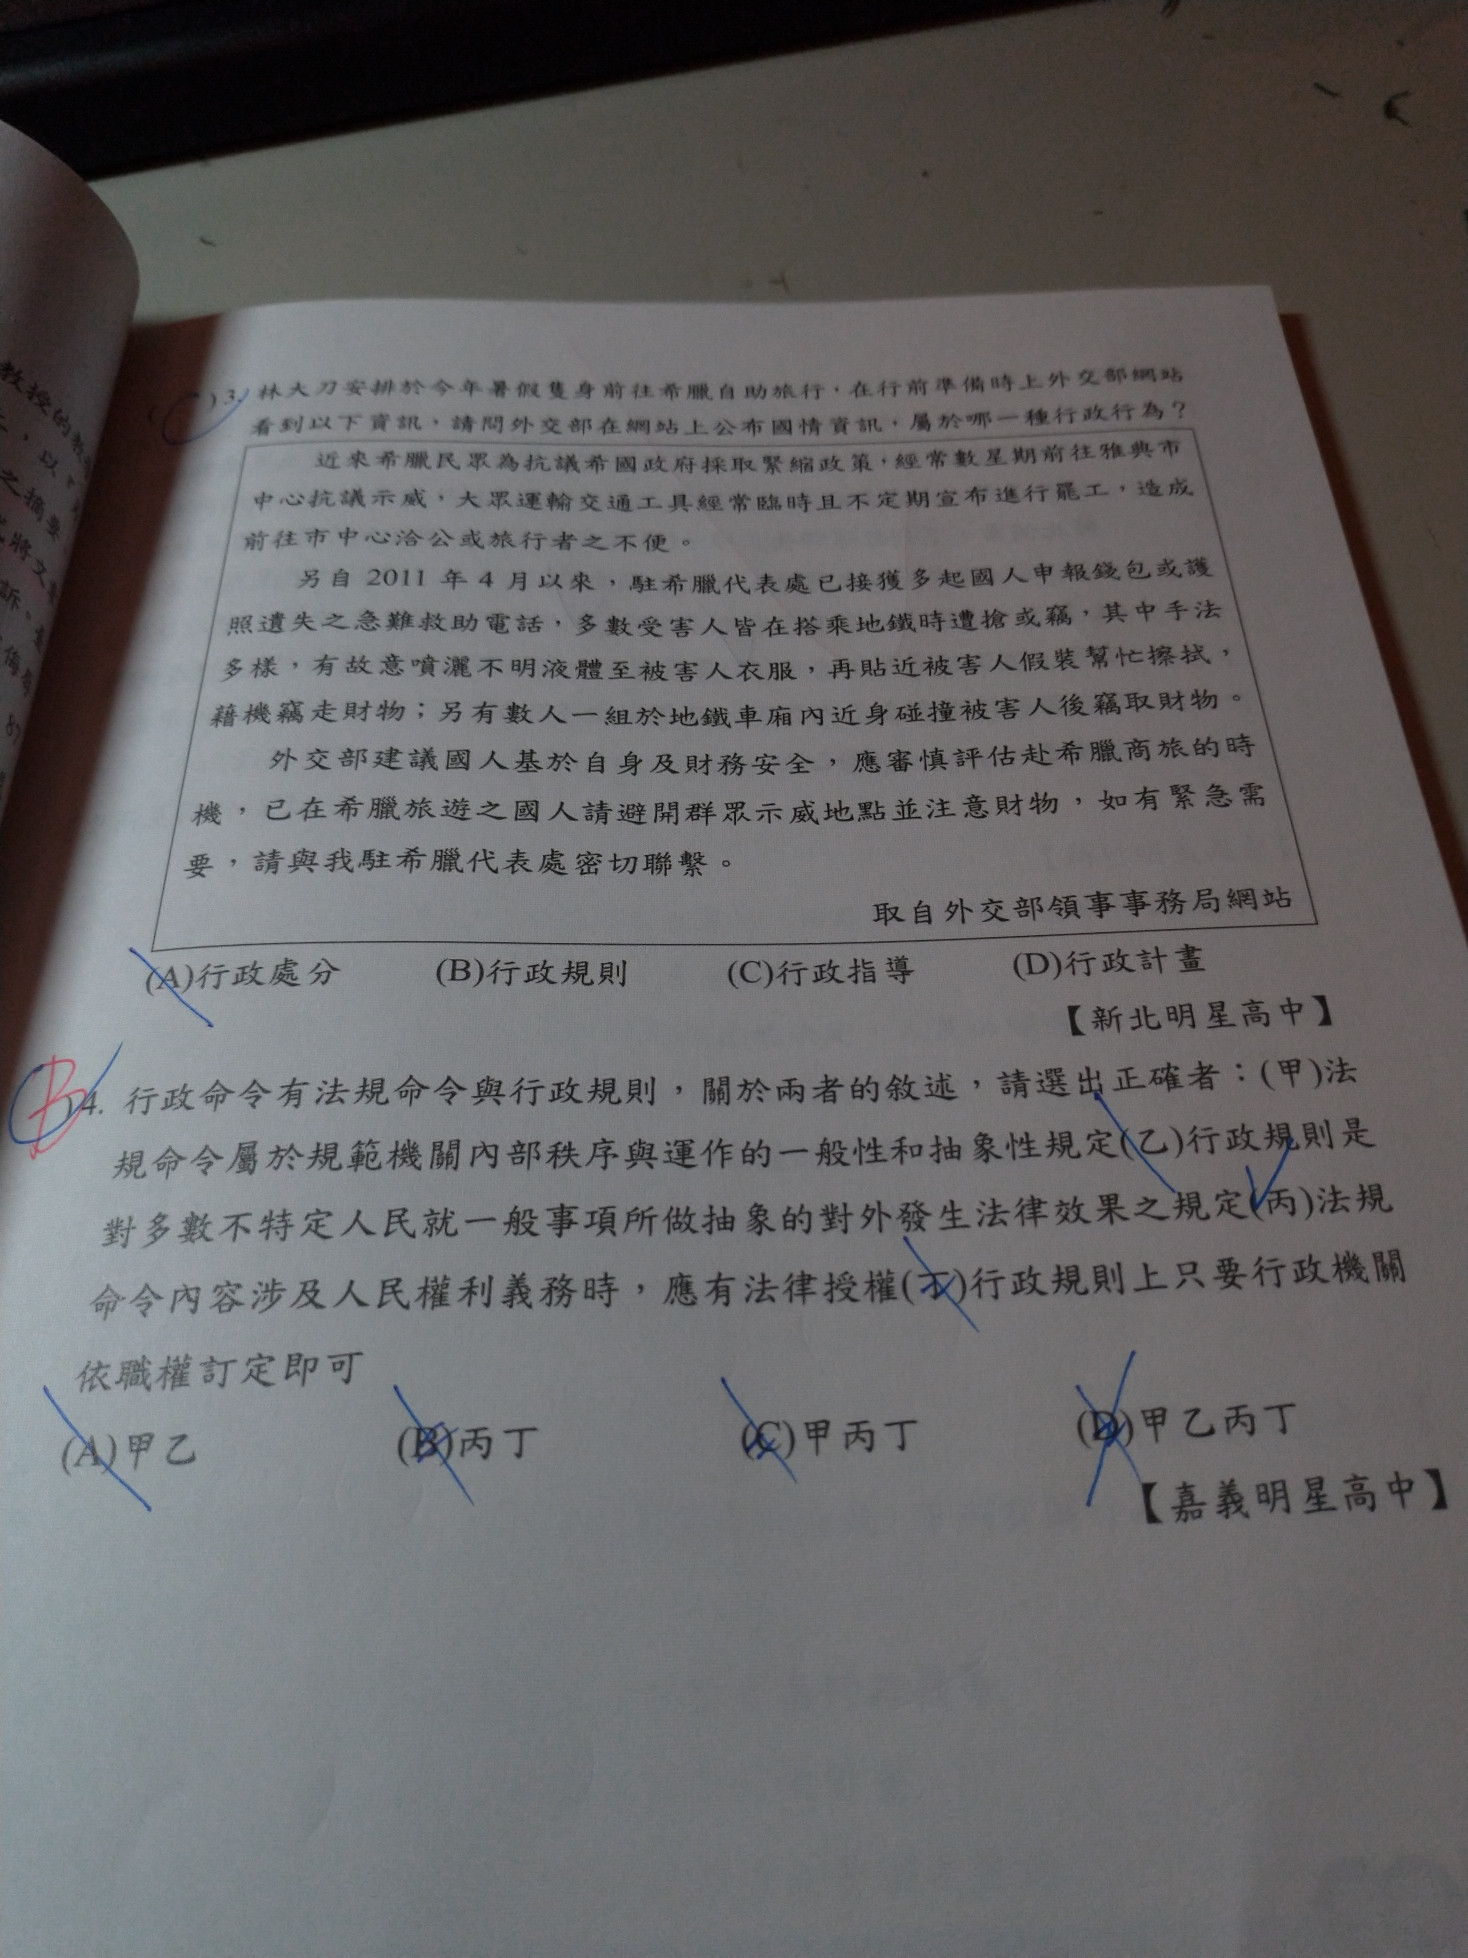 教授的教
之摘要
訴。
( C )3. 林大刀安排於今年暑假隻身前往希臘自助旅行，在行前準備時上外交部網站
看到以下資訊，請問外交部在網站上公布國情資訊，屬於哪一種行政行為？
近來希臘民眾為抗議希國政府採取緊縮政策，經常數星期前往雅典市
中心抗議示威，大眾運輸交通工具經常臨時且不定期宣布進行罷工，造成
前往市中心洽公或旅行者之不便。
另自 2011 年 4 月以來，駐希臘代表處已接獲多起國人申報錢包或護
照遺失之急難救助電話，多數受害人皆在搭乘地鐵時遭搶或竊，其中手法
多樣，有故意噴灑不明液體至被害人衣服，再貼近被害人假裝幫忙擦拭，
藉機竊走財物；另有數人一組於地鐵車廂內近身碰撞被害人後竊取財物。
外交部建議國人基於自身及財務安全，應審慎評估赴希臘商旅的時
機，已在希臘旅遊之國人請避開群眾示威地點並注意財物，如有緊急需
要，請與我駐希臘代表處密切聯繫。
取自外交部領事事務局網站
(A)行政處分 (B)行政規則 (C)行政指導 (D)行政計畫
【新北明星高中】
B )4. 行政命令有法規命令與行政規則，關於兩者的敘述，請選出正確者：(甲)法
規命令屬於規範機關內部秩序與運作的一般性和抽象性規定(乙)行政規則是
對多數不特定人民就一般事項所做抽象的對外發生法律效果之規定(丙)法規
命令內容涉及人民權利義務時，應有法律授權(丁)行政規則上只要行政機關
依職權訂定即可
(A)甲乙 (B)丙丁 (C)甲丙丁 (D)甲乙丙丁
【嘉義明星高中】